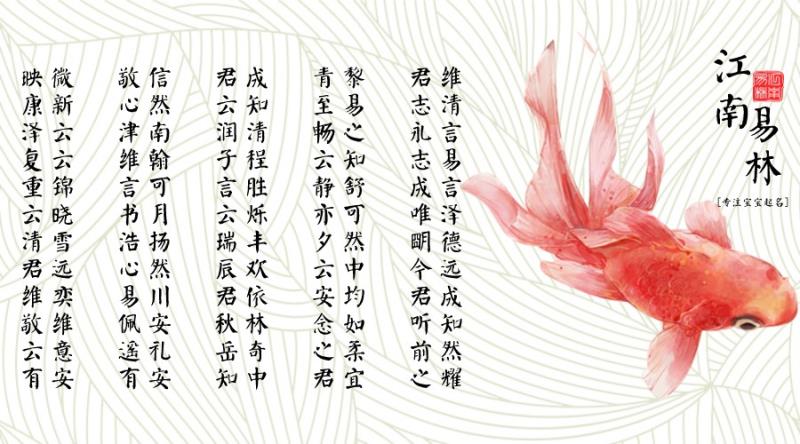 江南易林
[专注宝宝起名]
维清言易言泽德远成知然耀
君志永志成唯明令君听前之
黎易之知舒可然中均如柔宜
青至畅云静亦夕云安念之君
成知清程胜烁丰欢依林奇中
君云润子言云瑞辰君秋岳知
信然南翰可月扬然川安礼安
敬心津维言书浩心易佩遥有
微新云云锦晓雪远奕维意安
映康泽复重云清君维敬云有